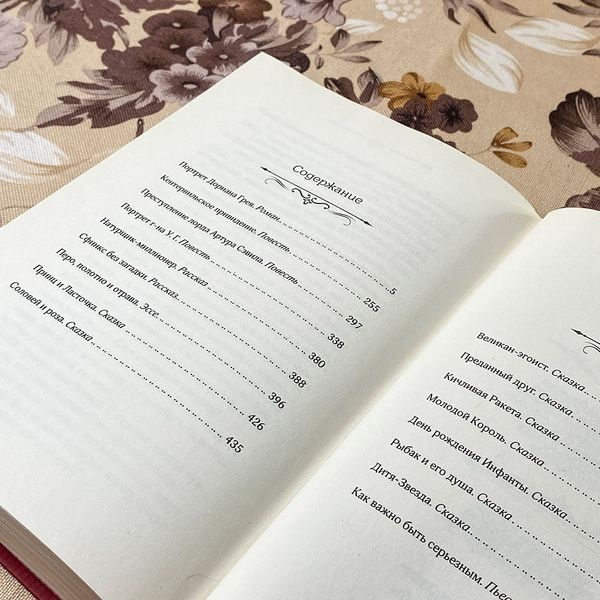 Содержание
Портрет Дориана Грея. Роман 5
Кентервильское привидение. Повесть 255
Преступление лорда Артура Сэвила. Повесть 297
Портрет г-на У. Г. Повесть 338
Натурщик-миллионер. Рассказ 380
Сфинкс без загадки. Рассказ 388
Перо, полотно и отрава. Эссе 396
Принц и Ласточка. Сказка 426
Соловей и роза. Сказка 435
Великан-эгоист. Сказка
Преданный друг. Сказка
Кичливая Ракета. Сказка
Молодой Король. Сказка
День рождения Инфанты. Сказка
Рыбак и его душа. Сказка
Дитя-Звезда. Сказка
Как важно быть серьезным. Пьес